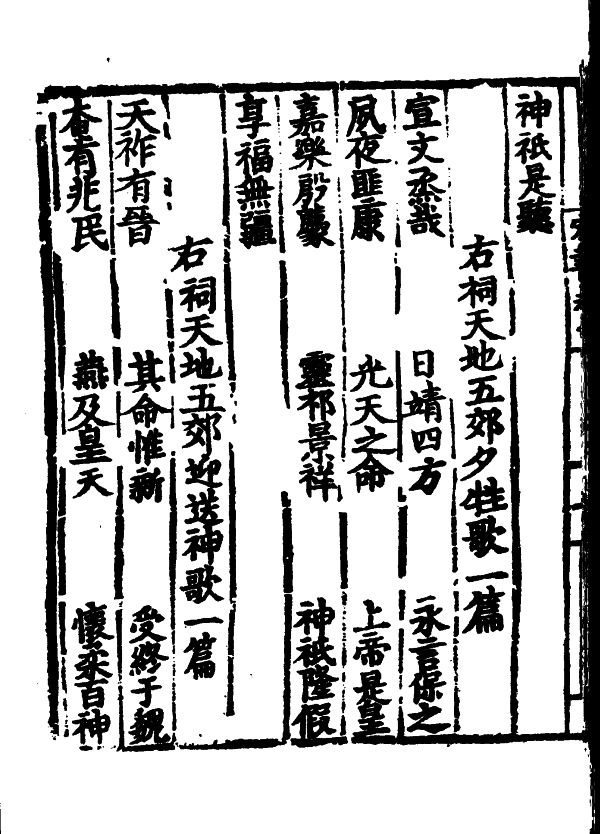 神祇是聽
右祠天地五郊夕牲歌一篇
宣文烝哉 日靖四方 永言保之
夙夜匪康 光天之命 上帝是皇
嘉樂殷薦 靈祁景祥 神祇隆假
享福無疆
右祠天地五郊迎送神歌一篇
天祚有晉 其命惟新 受終于魏
奄有兆民 燕及皇天 懷柔百神